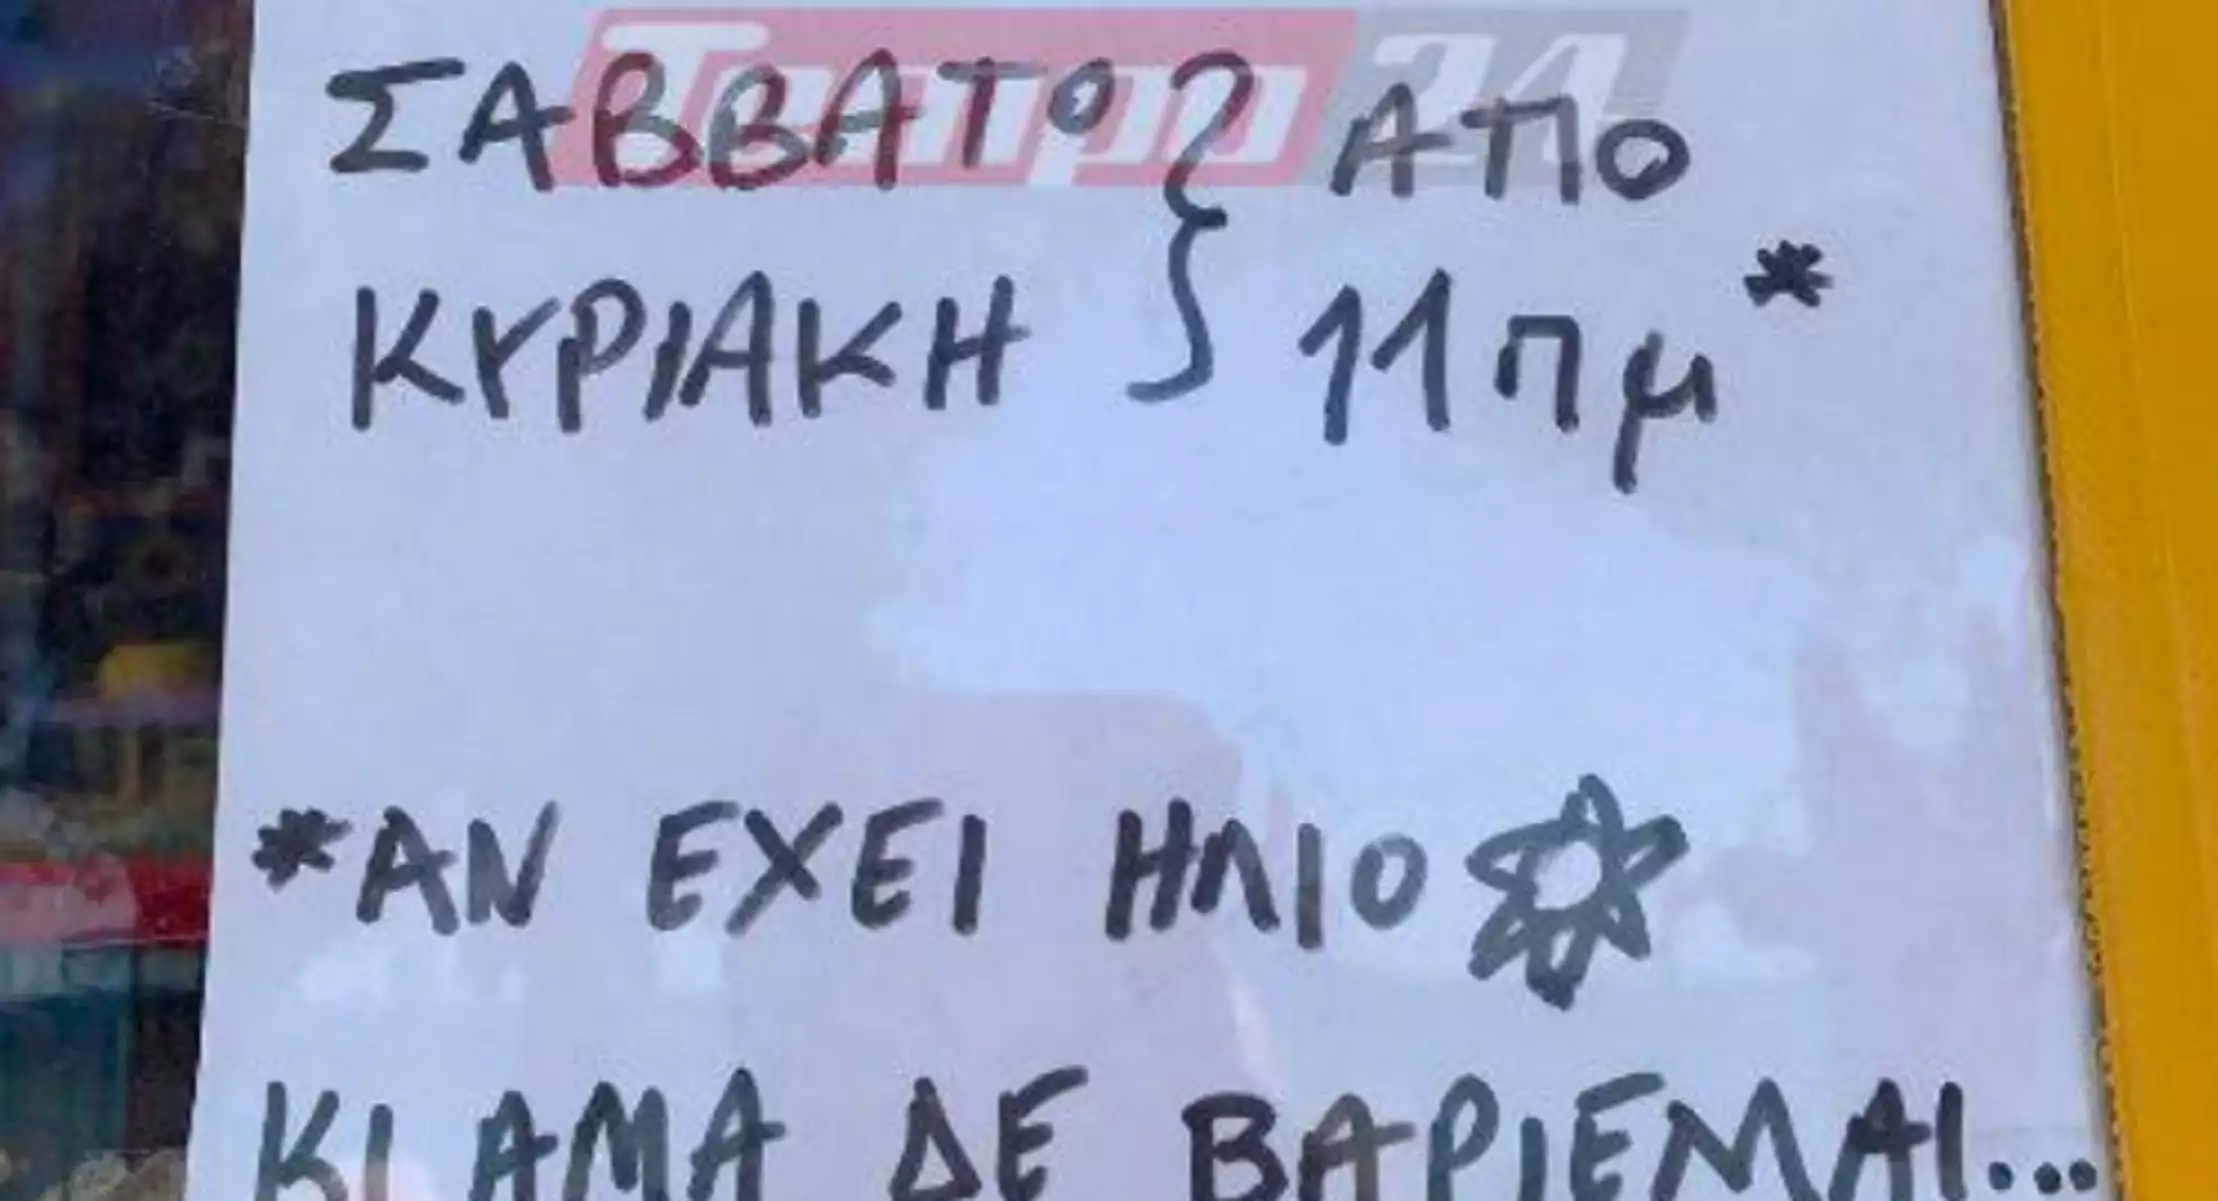 Tempo 24
ΣΑΒΒΑΤΟ } ΑΠΟ
ΚΥΡΙΑΚΗ } 11 πμ*
*ΑΝ ΕΧΕΙ ΗΛΙΟ
ΚΙ ΑΜΑ ΔΕ ΒΑΡΙΕΜΑΙ...